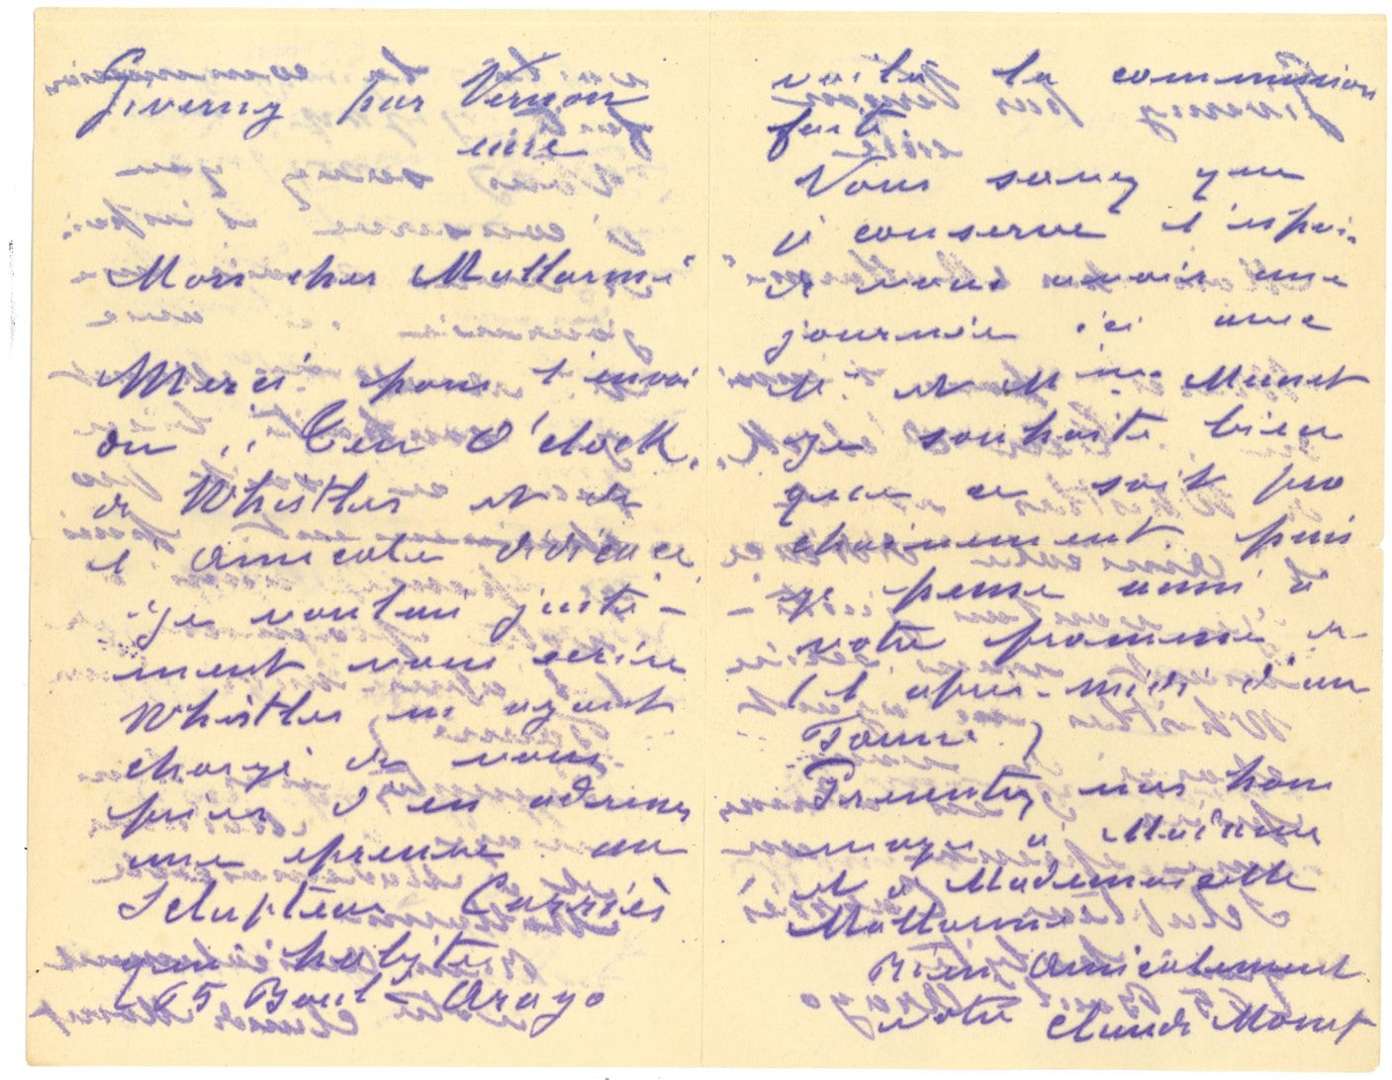 Giverny par Vernon
Eure
Mon cher Mallarmé
Merci pour l'envoi
du "Ten O'clock"
de Whistler et de
l'amicale dédicace
Je voulais juste-
ment vous écrire
Whistler m'ayant
chargé de vous
prier d'en adresser
une épreuve au
Sclupteur Carriès
qui habite
65 Boul^d Arago
voilà la commission
faite
Vous savez que
je conserve l'espoir
de vous avoir une
journée ici avec
M. et M^me Manet
je souhaite bien
que ce soit pro
chainement puis
je pense aussi à
votre promesse de
(l'après-midi d'un
Faune.)
Presentez mes hom
mages à Madame
et à Mademoiselle
Mallarmé
Bien amicalement
votre Claude Monet